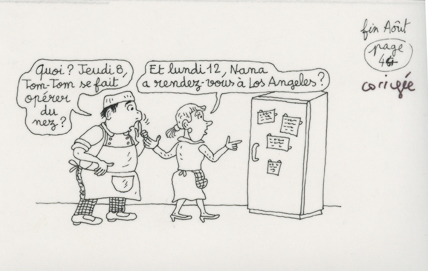 Quoi? Jeudi 8,
Tom-Tom se fait
opérer
du
nez?
Et lundi 12, Nana
a rendez-vous à Los Angeles?
fin Août
page
corrigée